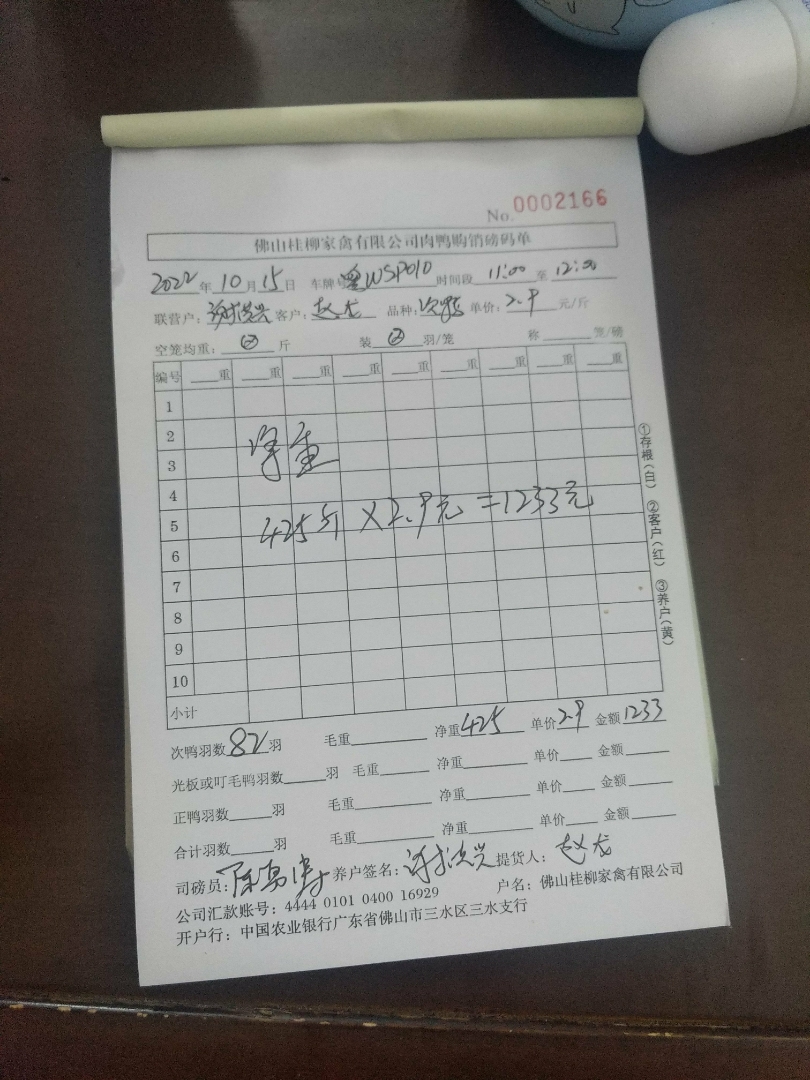 No. 0002166
佛山桂柳家禽有限公司肉鸭购销磅码单
2022年10月15日 车牌号粤WSP010 时间段 11:00 至 12:00
联营户: 客户: 赵龙 品种: 次鸭 单价: 2.9 元/斤
空笼均重: 斤 装 羽/笼 称 笼/磅
编号 重 重 重 重 重 重 重 重 重
1
2
3
净重
4
5
425斤 X2.9元 =1233元
6
7
8
9
10
小计
①存根(白) ②客户(红) ③养户(黄)
次鸭羽数 82 羽 毛重 净重 425 单价 2.9 金额 1233
光板或叮毛鸭羽数 羽 毛重 净重 单价 金额
正鸭羽数 羽 毛重 净重 单价 金额
合计羽数 羽 毛重 净重 单价 金额
司磅员: 养户签名: 提货人: 赵龙
公司汇款账号: 4444 0101 0400 16929 户名: 佛山桂柳家禽有限公司
开户行: 中国农业银行广东省佛山市三水区三水支行